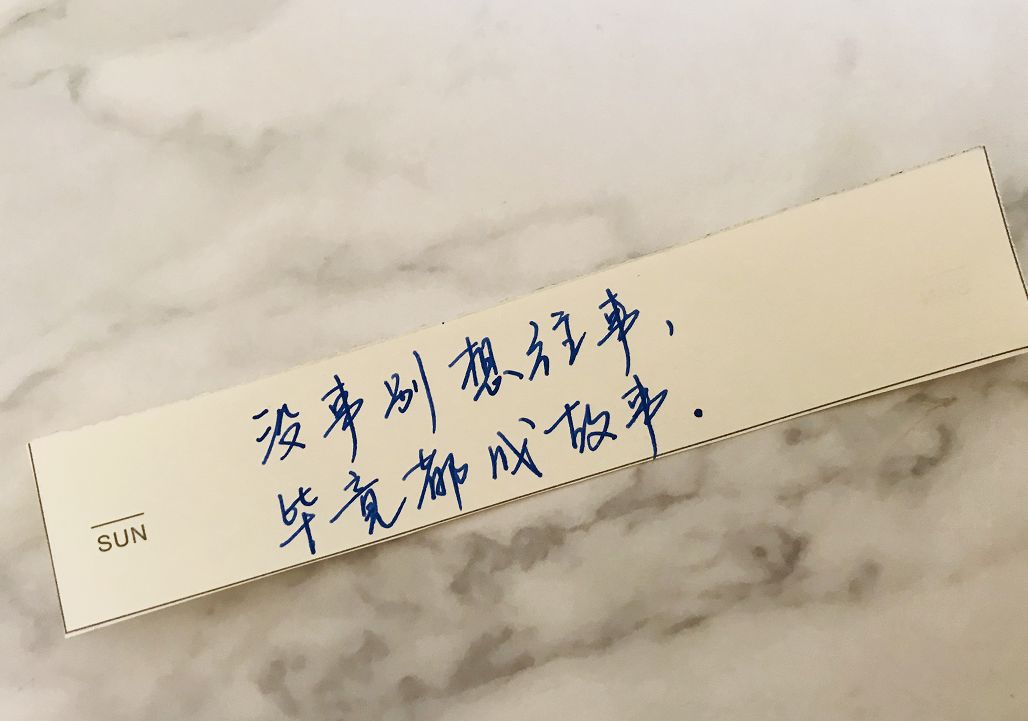 没事别想往事,
毕竟都成故事.
SUN